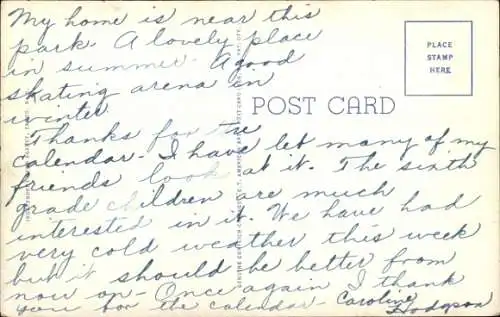 My home is near this
park. A lovely place
in summer. A good
skating arena in
winter.
Thanks for the
calendar. I have let many of my
friends look at it. The sixth
grade children are much
interested in it. We have had
very cold weather this week
but it should be better from
now on. Once again I thank
you for the calendar - Caroline
Hodgson
POST CARD
PLACE
STAMP
HERE